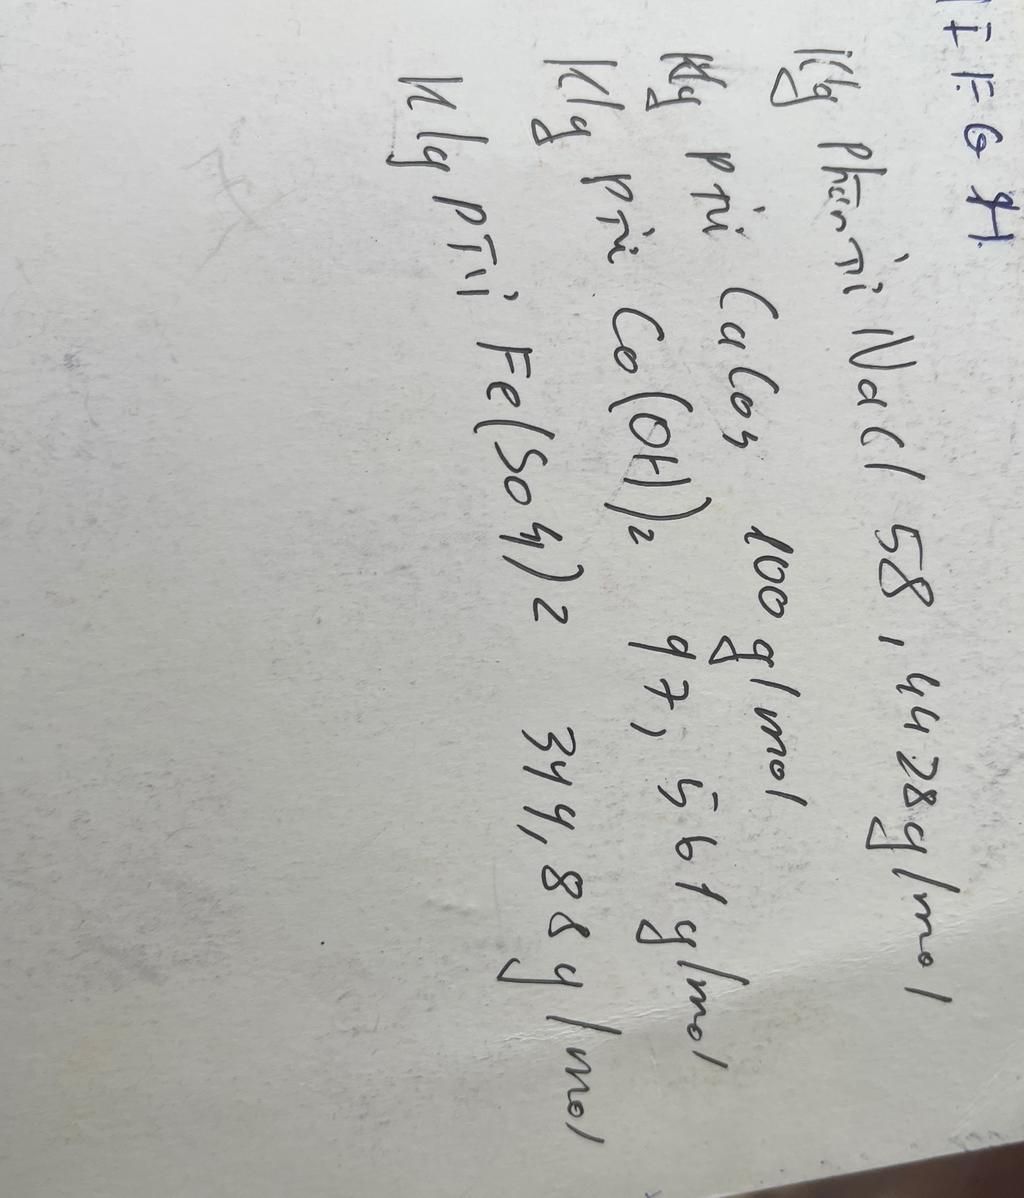 I F G H
Klg phân tử NaCl 58,4428g/mol
Klg ptử CaCo3 100g/mol
Klg ptử Co(OH)2 97,561g/mol
Klg ptử Fe(So4)2 344,88g/mol